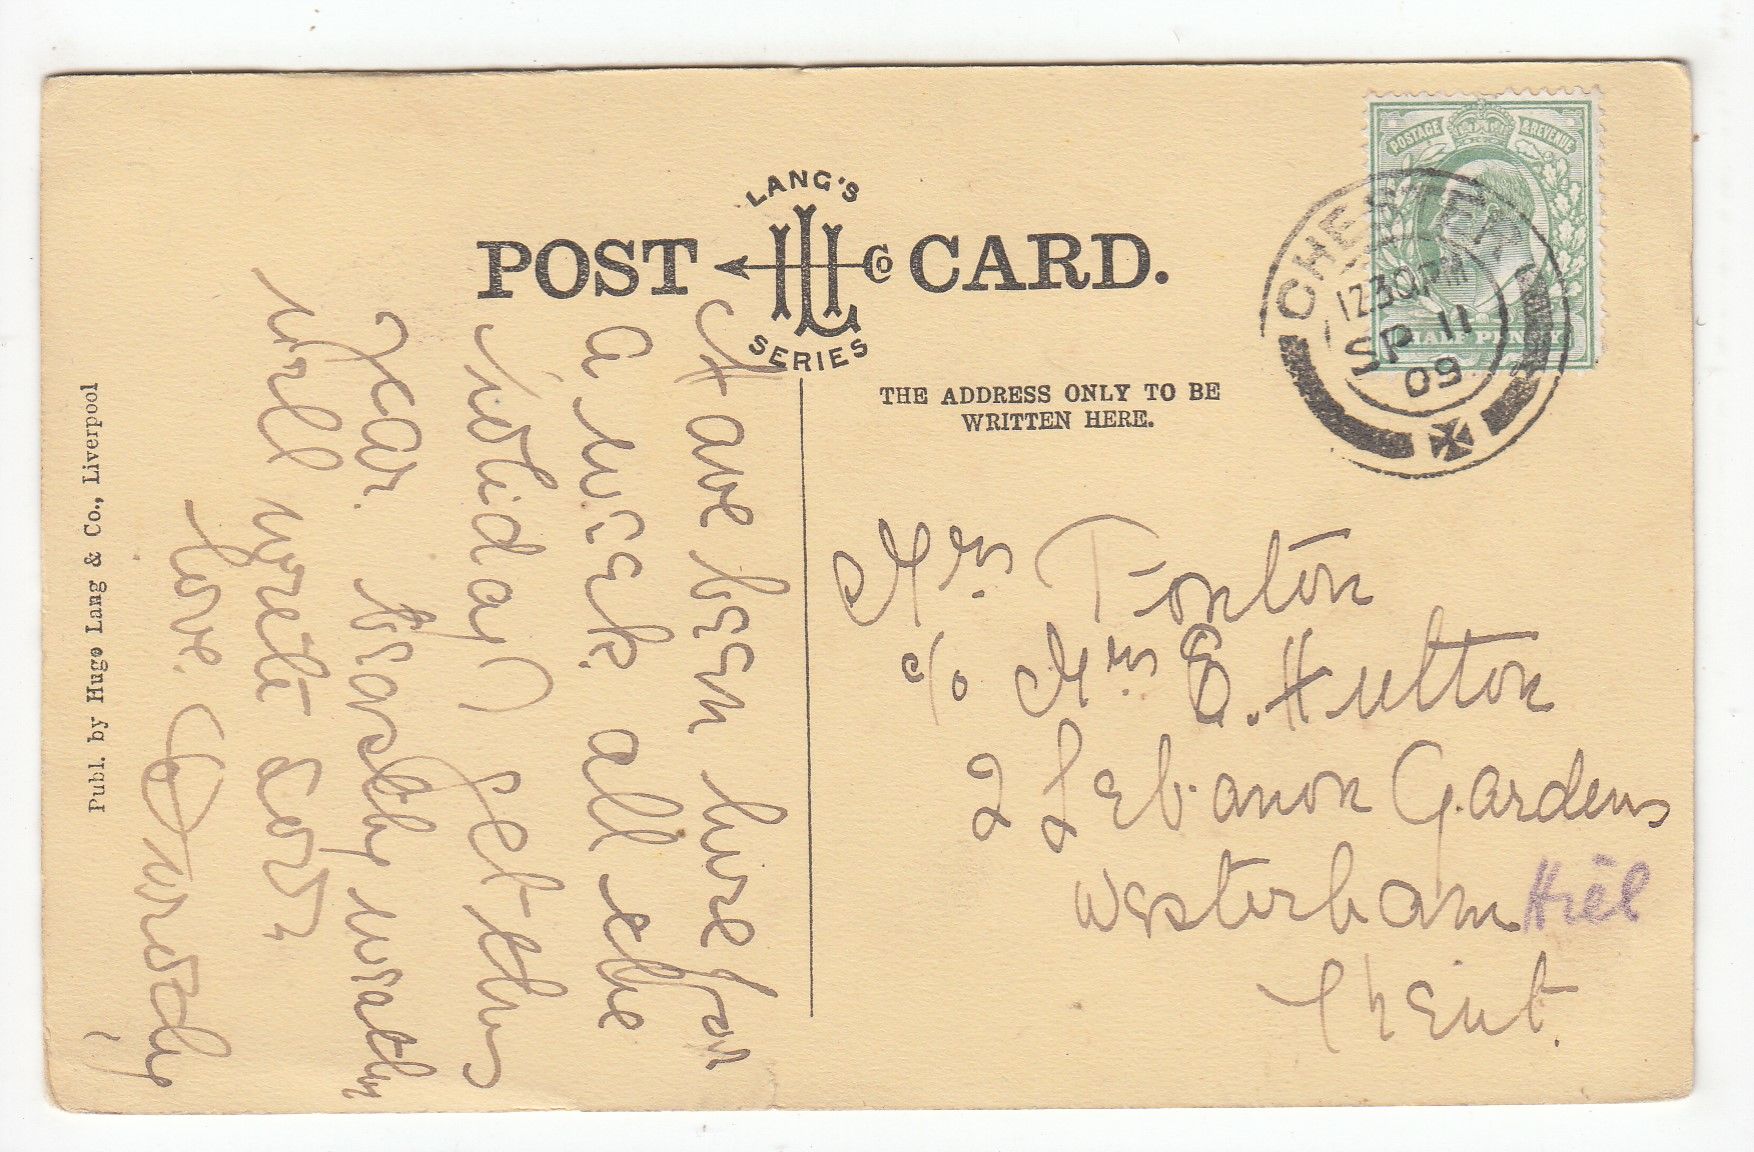 LANG'S
POST CARD.
Co
SERIES
THE ADDRESS ONLY TO BE
WRITTEN HERE.
POSTAGE & REVENUE
HALF PENNY
CHESTER
12 30 PM
SP 11
09
Mrs
c/o Mrs E. Hutton
2 Lebanon Gardens
Westerham Hill
Kent.
Have been here for
a week. all the
holiday I get this
year. beastly weather
will write soon
Love. Dorothy
Publ. by Hugo Lang & Co., Liverpool